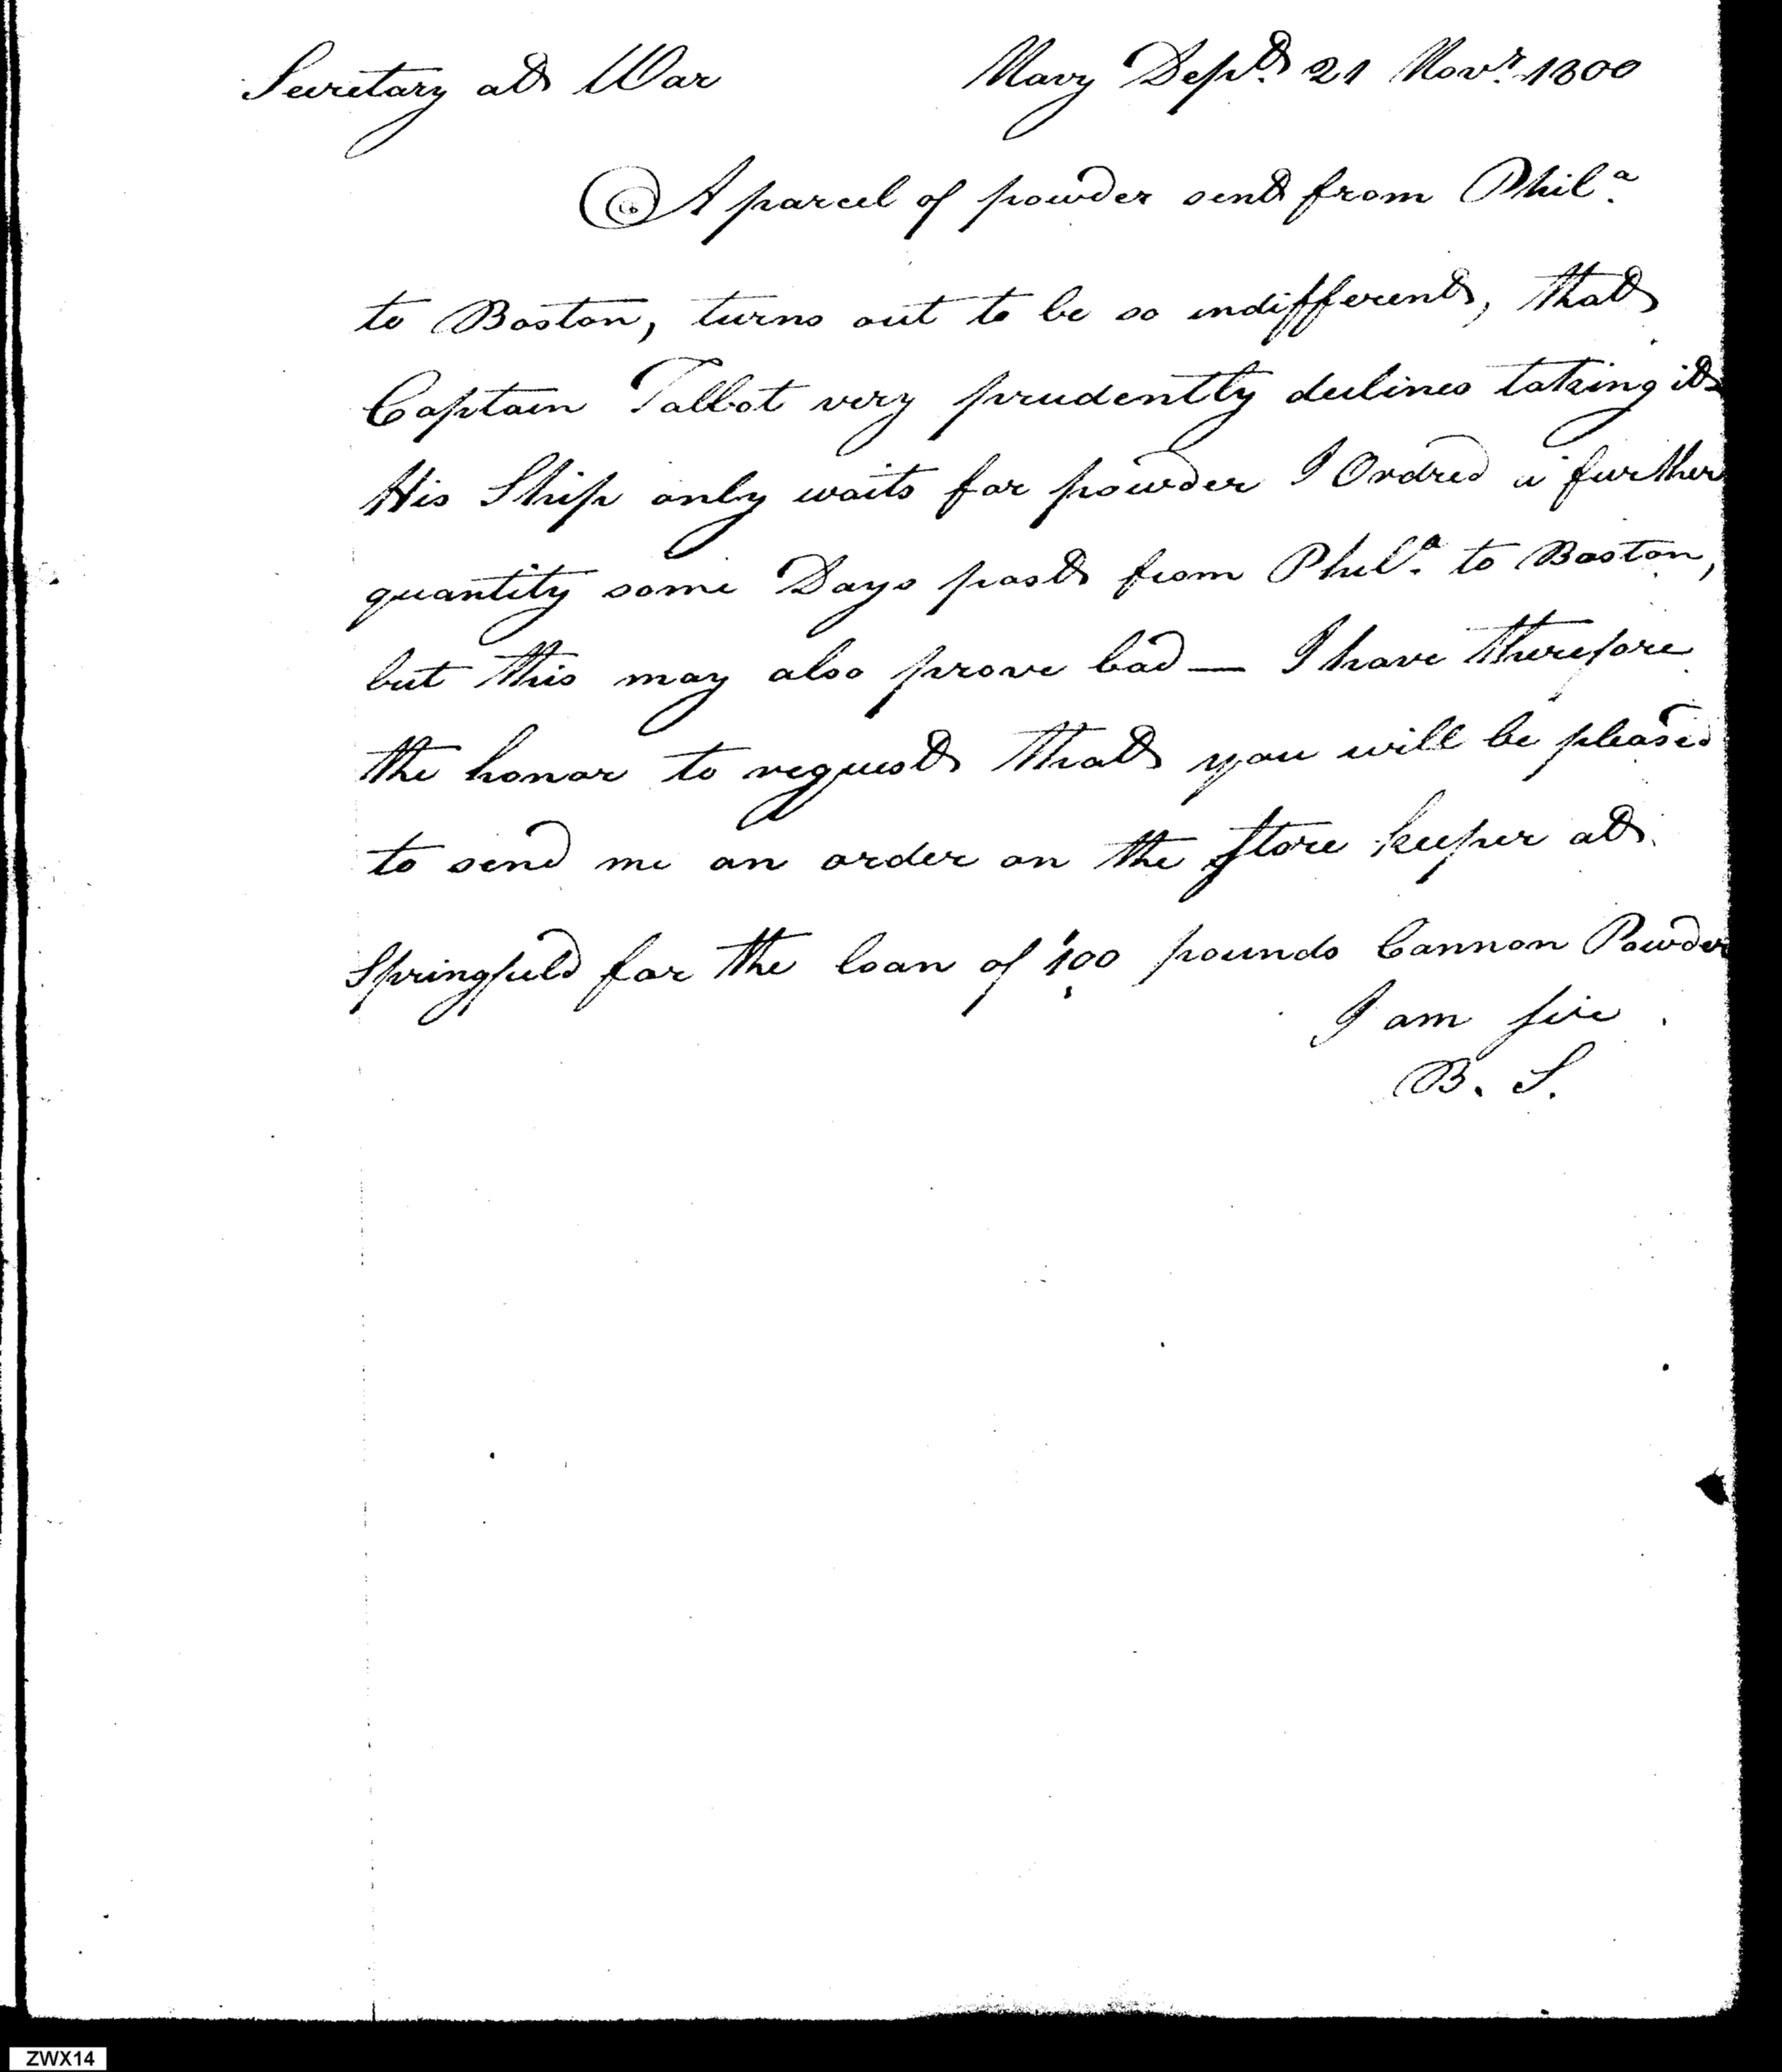 Secretary at War Navy Dept. 21 Novr. 1800
A parcel of powder sent from Phila.
to Boston, turns out to be so indifferent, that
Captain Talbot very prudently declines taking it
His Ship only waits for powder I Ordred a further
quantity some Days past from Phila. to Boston,
but this may also prove bad — I have therefore
the honor to request that you will be pleased
to send me an order on the Store keeper at
Springfield for the loan of 100 pounds Cannon Powder
I am Sir
B. S.
ZWX14